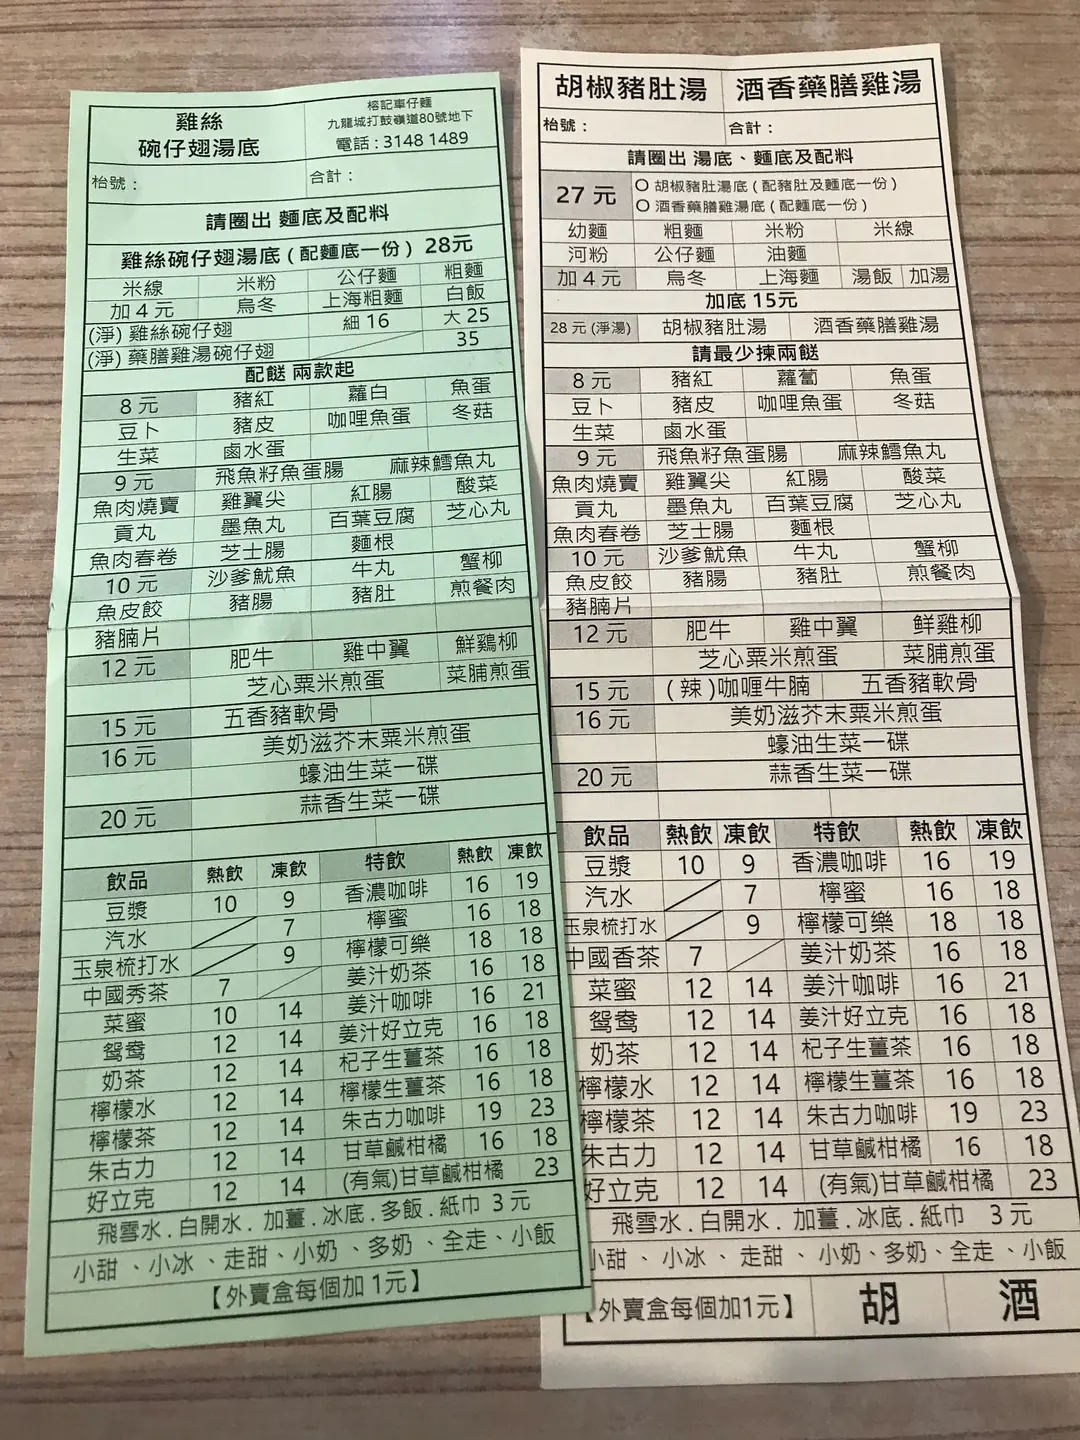 雞絲
碗仔翅湯底
榕記車仔麵
九龍城打鼓嶺道80號地下
電話 : 3148 1489
枱號 :
合計 :
請圈出 麵底及配料
雞絲碗仔翅湯底 ( 配麵底一份 ) 28元
米線 米粉 公仔麵 粗麵
加 4 元 烏冬 上海粗麵 白飯
(淨) 雞絲碗仔翅 細 16 大 25
(淨) 藥膳雞湯碗仔翅 35
配餸 兩款起
8 元 豬紅 蘿白 魚蛋
豆卜 豬皮 咖哩魚蛋 冬菇
生菜 鹵水蛋
9 元 飛魚籽魚蛋腸 麻辣鱈魚丸
魚肉燒賣 雞翼尖 紅腸 酸菜
貢丸 墨魚丸 百葉豆腐 芝心丸
魚肉春卷 芝士腸 麵根
10 元 沙爹魷魚 牛丸 蟹柳
魚皮餃 豬腸 豬肚 煎餐肉
豬腩片
12 元 肥牛 雞中翼 鮮鷄柳
芝心粟米煎蛋 菜脯煎蛋
15 元 五香豬軟骨
16 元 美奶滋芥末粟米煎蛋
蠔油生菜一碟
20 元 蒜香生菜一碟
飲品 熱飲 凍飲 特飲 熱飲 凍飲
豆漿 10 9 香濃咖啡 16 19
汽水 7 檸蜜 16 18
玉泉梳打水 9 檸檬可樂 18 18
中國秀茶 7 姜汁奶茶 16 18
菜蜜 10 14 姜汁咖啡 16 21
鴛鴦 12 14 姜汁好立克 16 18
奶茶 12 14 杞子生薑茶 16 18
檸檬水 12 14 檸檬生薑茶 16 18
檸檬茶 12 14 朱古力咖啡 19 23
朱古力 12 14 甘草鹹柑橘 16 18
好立克 12 14 (有氣)甘草鹹柑橘 23
飛雪水 . 白開水 . 加薑 . 冰底 . 多飯 . 紙巾 3 元
小甜 、小冰 、走甜 、小奶 、多奶 、全走 、小飯
【外賣盒每個加 1元】
胡椒豬肚湯 酒香藥膳雞湯
枱號 : 合計 :
請圈出 湯底 、麵底及配料
27 元 O 胡椒豬肚湯底 ( 配豬肚及麵底一份 )
O 酒香藥膳雞湯底 ( 配麵底一份 )
幼麵 粗麵 米粉 米線
河粉 公仔麵 油麵
加 4 元 烏冬 上海麵 湯飯 加湯
加底 15元
28 元 (淨湯) 胡椒豬肚湯 酒香藥膳雞湯
請最少揀兩餸
8 元 豬紅 蘿蔔 魚蛋
豆卜 豬皮 咖哩魚蛋 冬菇
生菜 鹵水蛋
9 元 飛魚籽魚蛋腸 麻辣鱈魚丸
魚肉燒賣 雞翼尖 紅腸 酸菜
貢丸 墨魚丸 百葉豆腐 芝心丸
魚肉春卷 芝士腸 麵根
10 元 沙爹魷魚 牛丸 蟹柳
魚皮餃 豬腸 豬肚 煎餐肉
豬腩片
12 元 肥牛 雞中翼 鮮雞柳
芝心粟米煎蛋 菜脯煎蛋
15 元 ( 辣 )咖喱牛腩 五香豬軟骨
16 元 美奶滋芥末粟米煎蛋
蠔油生菜一碟
20 元 蒜香生菜一碟
飲品 熱飲 凍飲 特飲 熱飲 凍飲
豆漿 10 9 香濃咖啡 16 19
汽水 7 檸蜜 16 18
玉泉梳打水 9 檸檬可樂 18 18
中國香茶 7 姜汁奶茶 16 18
菜蜜 12 14 姜汁咖啡 16 21
鴛鴦 12 14 姜汁好立克 16 18
奶茶 12 14 杞子生薑茶 16 18
檸檬水 12 14 檸檬生薑茶 16 18
檸檬茶 12 14 朱古力咖啡 19 23
朱古力 12 14 甘草鹹柑橘 16 18
好立克 12 14 (有氣)甘草鹹柑橘 23
飛雪水 . 白開水 . 加薑 . 冰底 . 紙巾 3 元
小甜 、小冰 、走甜 、小奶、多奶 、全走 、小飯
【外賣盒每個加1元】 胡 酒